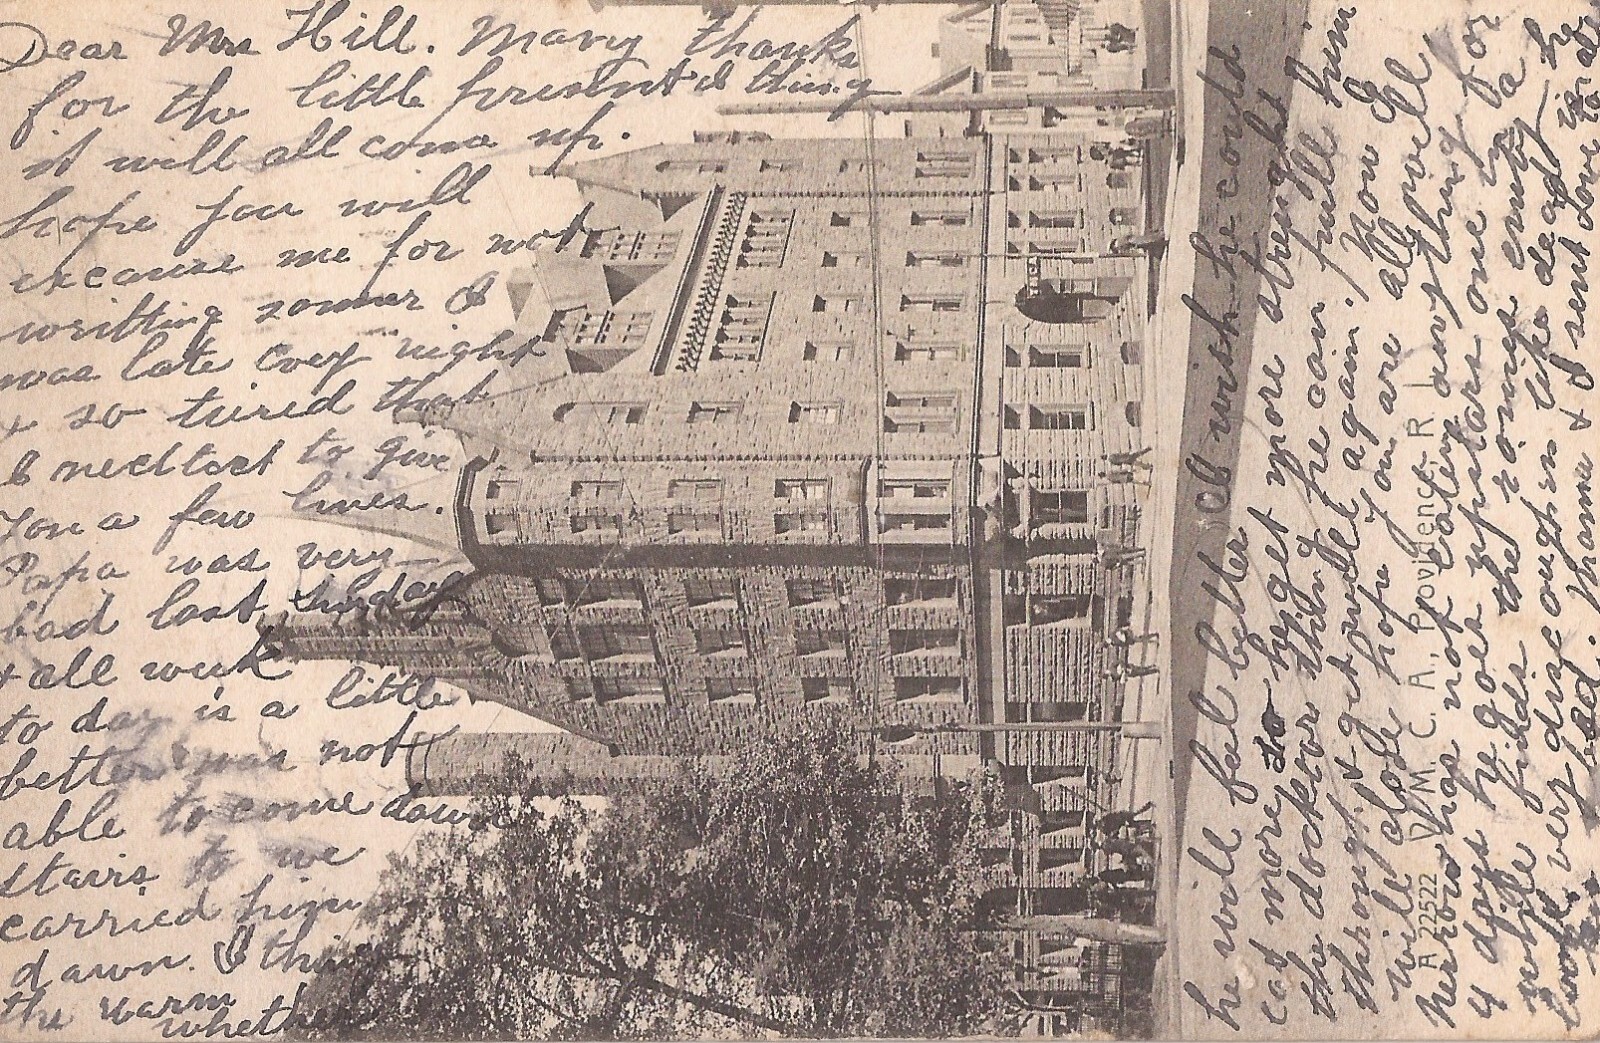 Dear Mrs Hill. Many thanks
for the little present'd thing
it will all come up.
hope you will
excause me for not
writting sonner I
was late evey night
& so tired that
I neclTect to give
you a few lines.
Papa was very
bad last Sunday
& all week
to day is a little
better was not
able to come down
stairs to we
carried him
down. I thing
the warm
whether
he will fel better I wish he could
eat more to hs get more strenght
the docktor thing he can pull him
throught & get well again. Now I
will close hope you are all well
nerrow has not eaten anything for
4 days he goes upstars one in a
while finds the romes emty
very discoughn like dead he
bad. Mama & I sent Love to all
A 22522 Y. M. C. A., Providence, R. I.